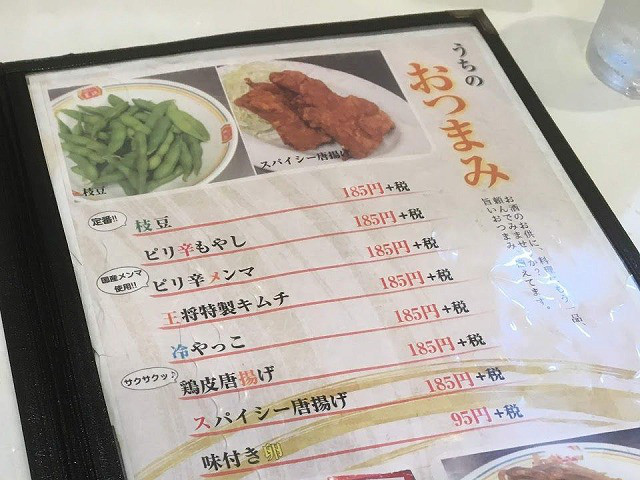 うちの
おつまみ
お酒のお供に、料理
頼んでみませ
旨いおつまみ
えてます。
枝豆
スパイシー唐揚げ
定番!!
枝豆 185円+税
ピリ辛もやし 185円+税
国産メンマ
使用!!
ピリ辛メンマ 185円+税
王将特製キムチ 185円+税
冷やっこ 185円+税
サクサクッ♪
鶏皮唐揚げ 185円+税
スパイシー唐揚げ 185円+税
味付き卵 95円+税